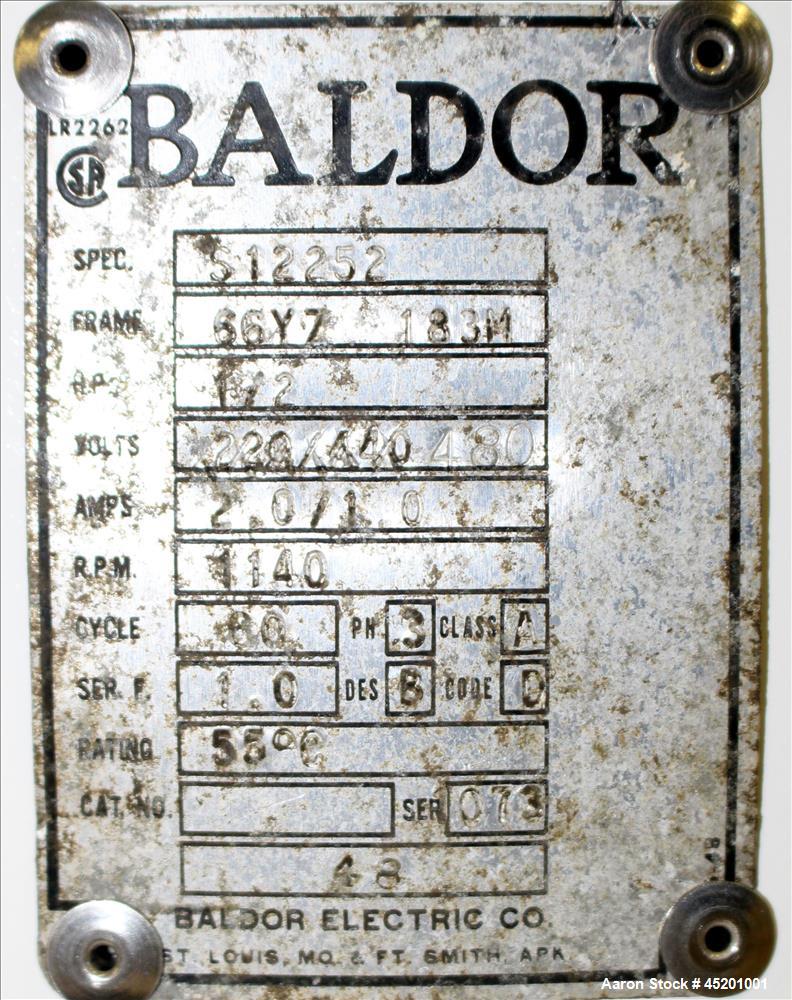 BALDOR
LR2262
SPEC. S12252
FRAME 66Y7 183M
H.P. 1/2
VOLTS 220/440 480
AMPS 2.0/1.0
R.P.M. 1140
CYCLE 60 PH 3 CLASS A
SER. F. 1.0 DES B CODE D
RATING 55°C
CAT. NO. SER 073
48
BALDOR ELECTRIC CO.
ST. LOUIS, MO. & FT. SMITH, ARK
Aaron Stock # 45201001